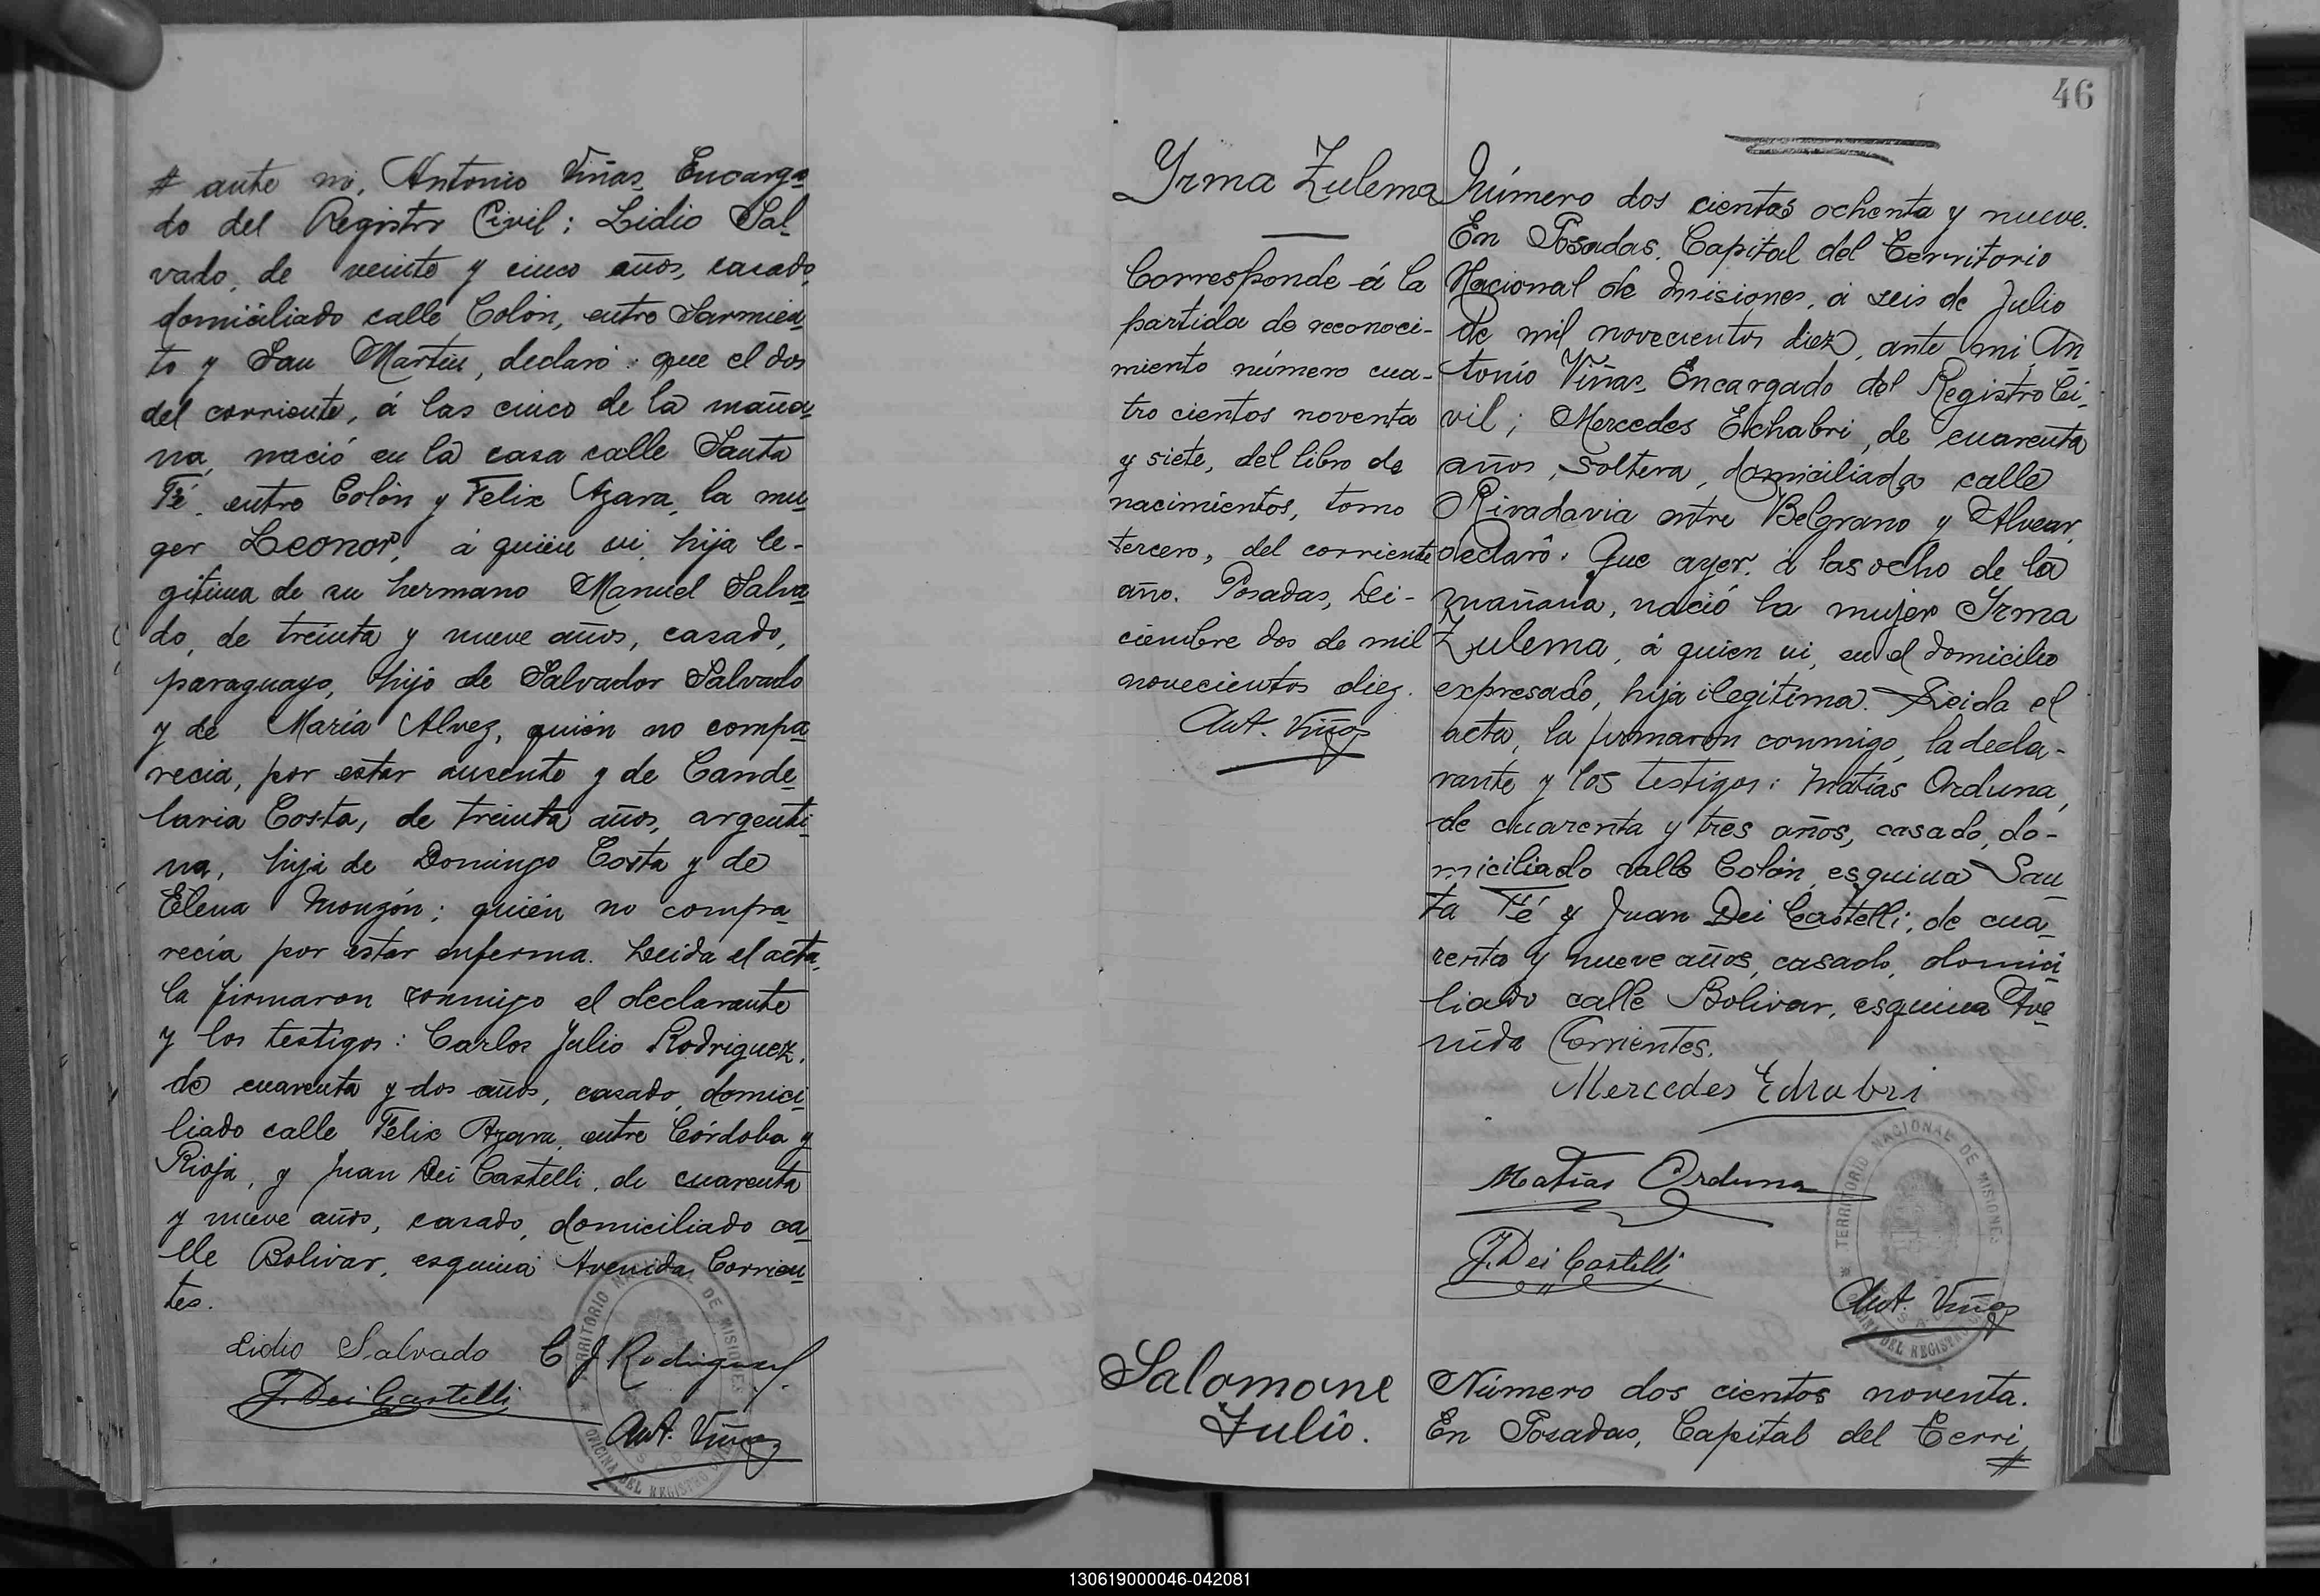 # ante mi, Antonio Viñas, Encarga-
do del Registro Civil; Lidio Sal-
vado, de veinte y cinco años, casado,
domiciliado calle Colón, entre Sarmien-
to y San Martin, declaró: que el dos
del corriente, á las cinco de la maña-
na, nació en la casa calle Santa
Fé, entre Colón y Felix Azara, la mu-
ger Leonor, á quien vi, hija le-
gitima de su hermano Manuel Salva-
do, de treinta y nueve años, casado,
paraguayo, hijo de Salvador Salvado
y de Maria Alvez, quién no compa-
recia, por estar ausente y de Cande-
laria Costa, de treinta años, argenti-
na, hija de Domingo Costa y de
Elena Monzón; quién no compa-
recia por estar enferma. Leida el acta,
la firmaron conmigo el declarante
y los testigos: Carlos Julio Rodriguez,
de cuarenta y dos años, casado, domici-
liado calle Felix Azara, entre Córdoba y
Rioja, y Juan Dei Castelli, de cuarenta
y nueve años, casado, domiciliado ca-
lle Bolivar, esquina Avenida Corrien-
tes.
Lidio Salvado C J Rodriguez
J. Dei Castelli
Ant. Viñas
TERRITORIO NACIONAL DE MISIONES
OFICINA DEL REGISTRO CIVIL
46
Yrma Zulema
Corresponde á la
partida de reconoci-
miento número cua-
tro cientos noventa
y siete, del libro de
nacimientos, tomo
tercero, del corriente
año. Posadas, Dei-
ciembre dos de mil
novecientos diez.
Ant. Viñas
Número dos cientos ochenta y nueve.
En Posadas, Capital del Territorio
Nacional de Misiones, á seis de Julio
de mil novecientos diez, ante mi, An-
tonio Viñas, Encargado del Registro Ci-
vil; Mercedes Echabri, de cuarenta
años, soltera, domiciliada calle
Rivadavia entre Belgrano y Alvear,
declaró: Que ayer, á las ocho de la
mañana, nació la mujer Yrma
Zulema, á quien vi, en el domicilio
expresado, hija ilegitima. Leida el
acta, la firmaron conmigo, la decla-
rante y los testigos: Matías Orduna,
de cuarenta y tres años, casado, do-
miciliado calle Colón, esquina San-
ta Fé y Juan Dei Castelli; de cua-
renta y nueve años, casado, domici-
liado calle Bolivar, esquina Ave-
nida Corrientes.
Mercedes Echabri
Matias Orduna
J. Dei Castelli
Ant. Viñas
TERRITORIO NACIONAL DE MISIONES
OFICINA DEL REGISTRO CIVIL
Salomone
Julio.
Número dos cientos noventa.
En Posadas, Capital del Terri-
#
130619000046-042081